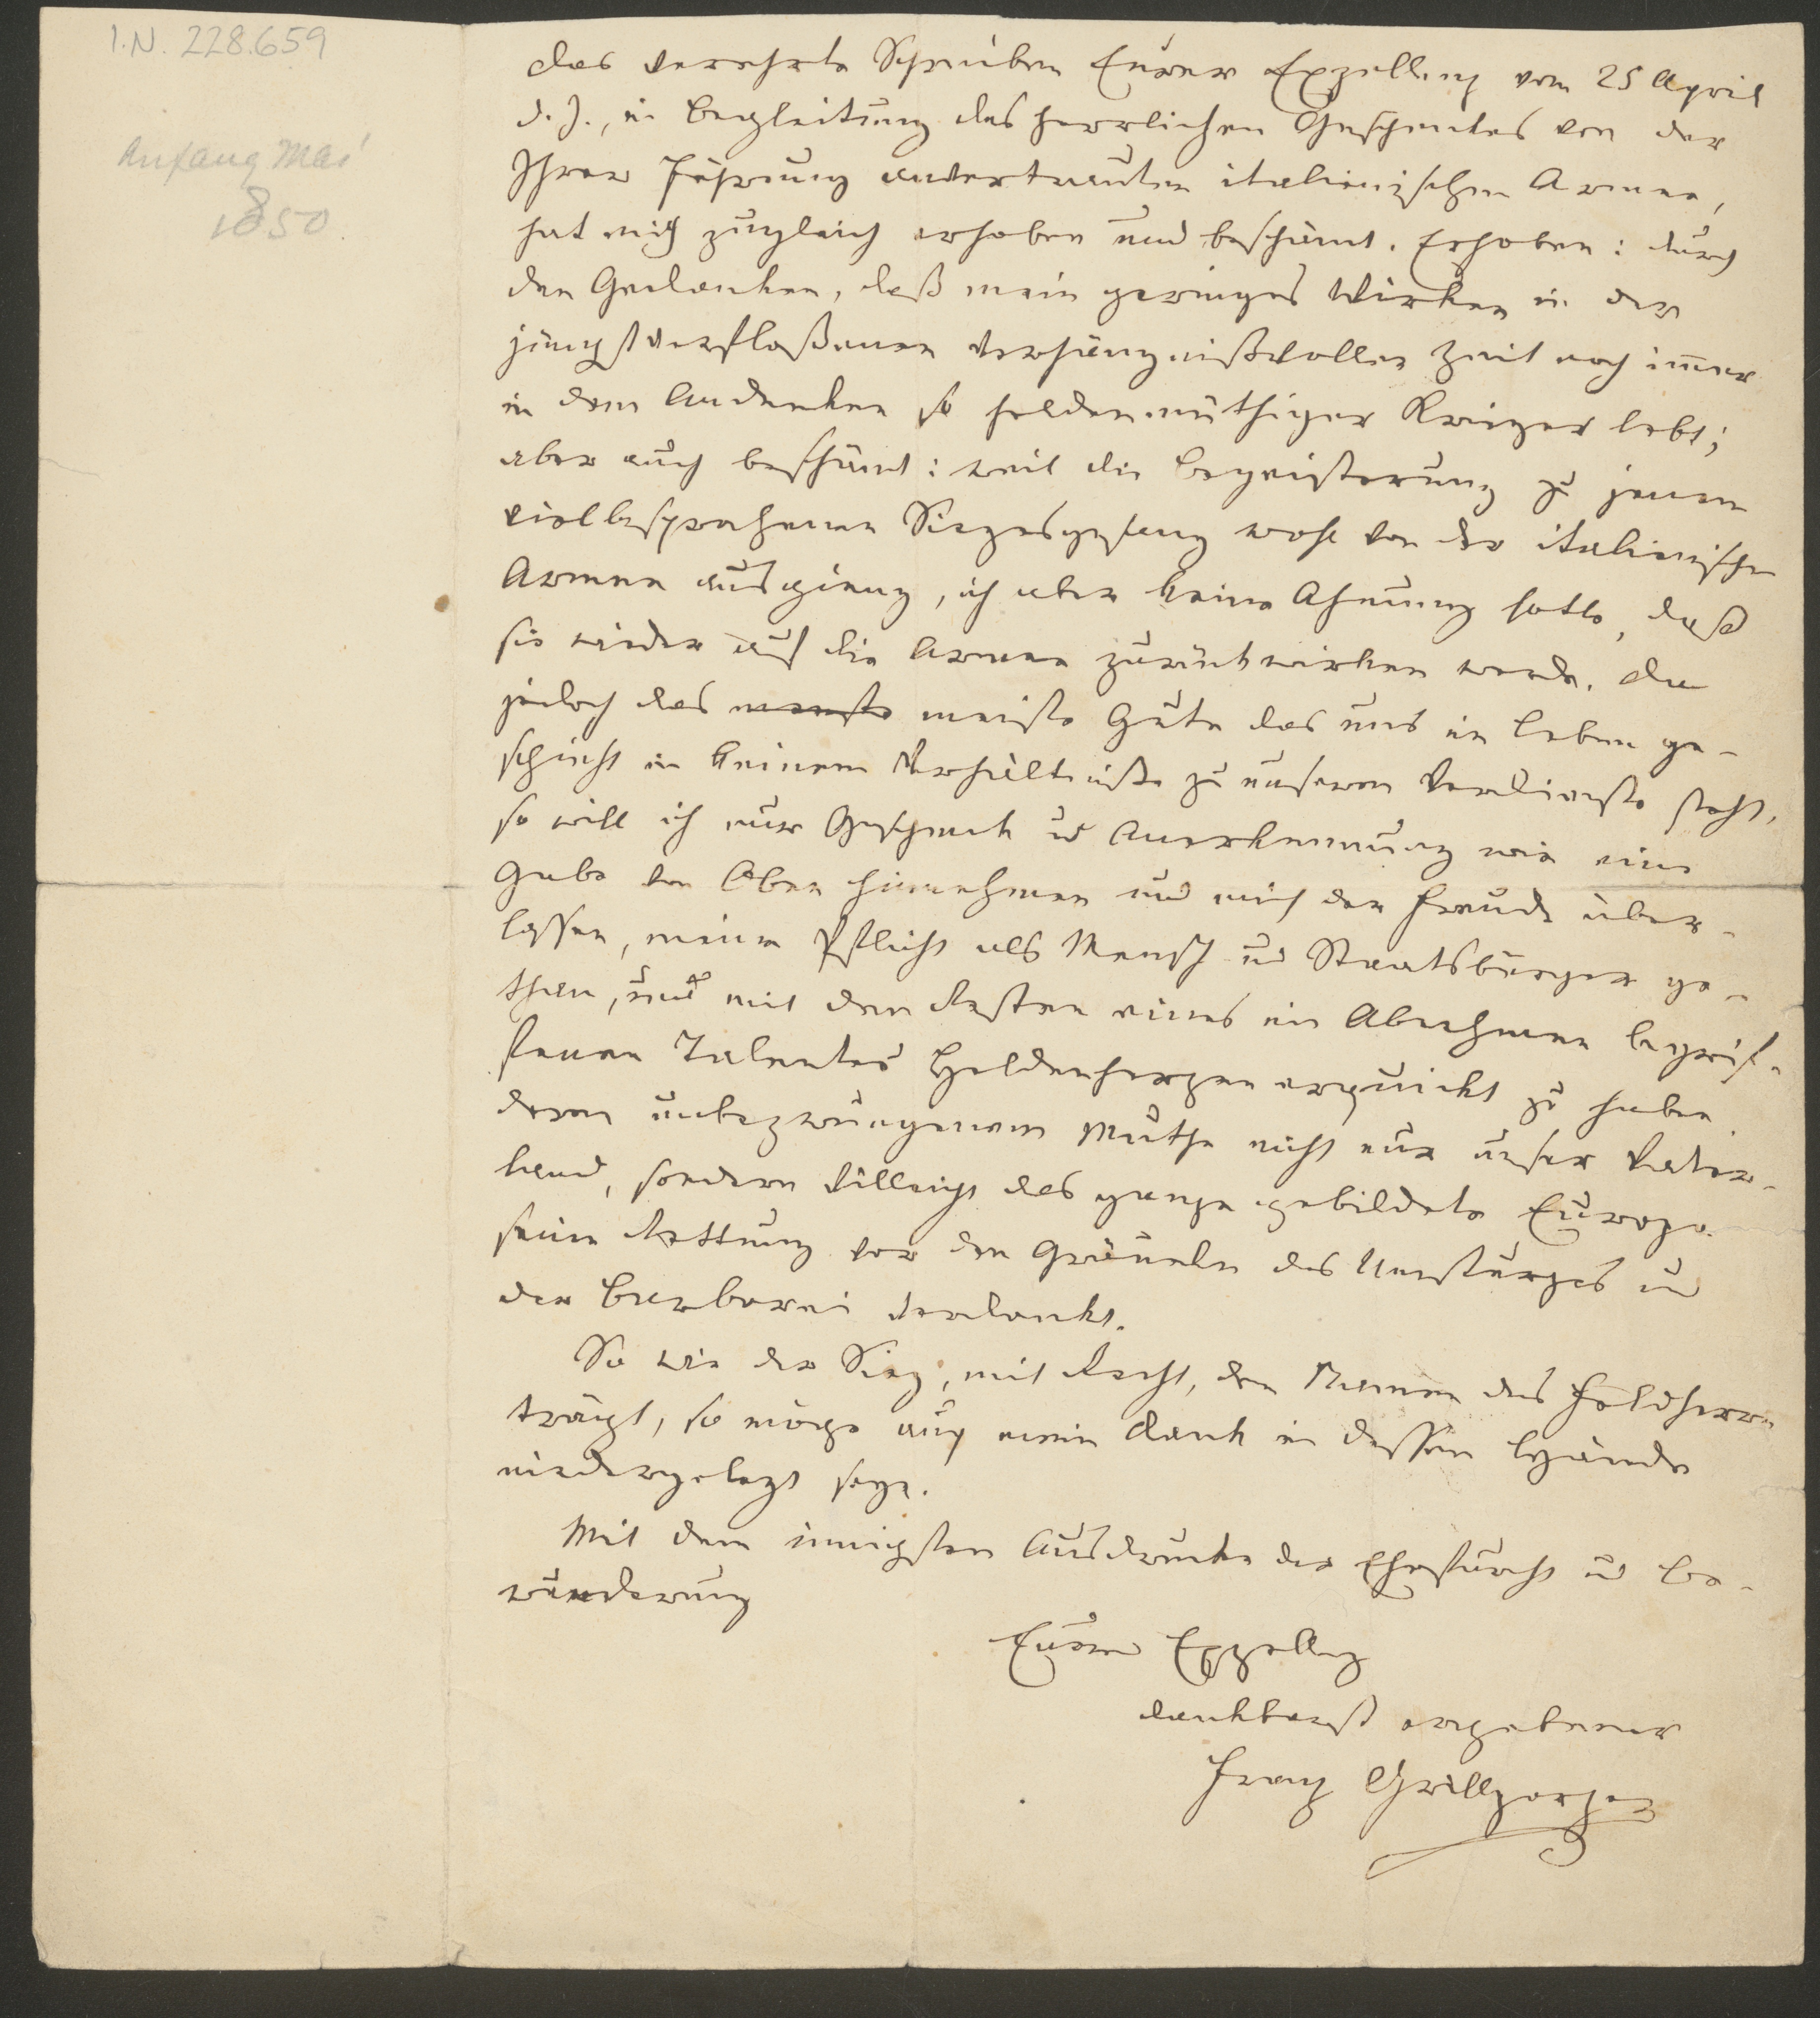 I.N. 228.659
Anfang Mai
1850.
Das verehrte Schreiben Eurer Exzellenz vom 25 April
d. J., in Begleitung des herrlichen Geschenkes von der
Ihrer Führung anvertrauten italienischen Armee,
hat mich zugleich erhoben und beschämt. Erhoben: durch
den Gedanken, daß mein geringes Wirken in der
jüngstverfloßenen verhängnißvollen Zeit noch immer
in dem Andenken so heldenmüthiger Krieger lebt;
aber auch beschämt: weil die Begeisterung zu jenem
vielbesprochenen Siegesgesang wohl von der italienischen
Armee ausgieng, ich aber keine Ahnung hatte, daß
sie wieder auf die Armee zurückwirken werde. Da
jedoch das meiste Gute das uns im Leben ge-
schieht in keinem Verhältniße zu unserem Verdienste steht,
so will ich nur Geschenk u Anerkennung wie eine
Gabe von Oben hinnehmen und mich der Freude über-
lassen, meine Pflicht als Mensch und Staatsbürger ge-
than, und mit den Resten eines im Abnehmen begrif-
fenen Talentes Heldenherzen erquickt zu haben
deren unbezwungenem Muthe nicht nur unser Vater-
land, sondern villeicht das ganze gebildete Europa
seine Rettung vor den Gräueln des Umsturzes und
der Barbarei verdankt.
So wie der Sieg, mit Recht, den Namen des Feldherrn
trägt, so möge auch mein Dank in dessen Hände
niedergelegt seyn.
Mit dem innigsten Ausdrucke der Ehrfurcht und Be-
wunderung
Eurer Exzellenz
dankbarst ergebener
Franz Grillparzer